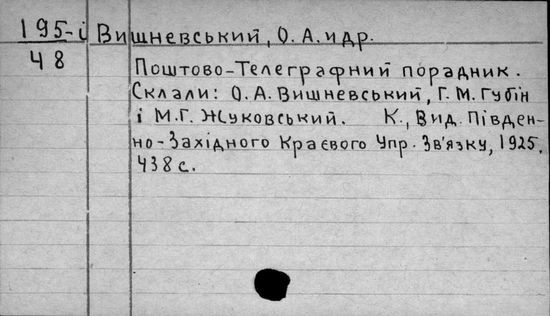 195-і Вишневський, О. А. и др.
48
Поштово-Телеграфний порадник.
Склали: О. А. Вишневський, Г. М. Губін
і М. Г. Жуковський. К., Вид. Півден-
но-Західного Краєвого Упр. Зв'язку, 1925.
438 с.